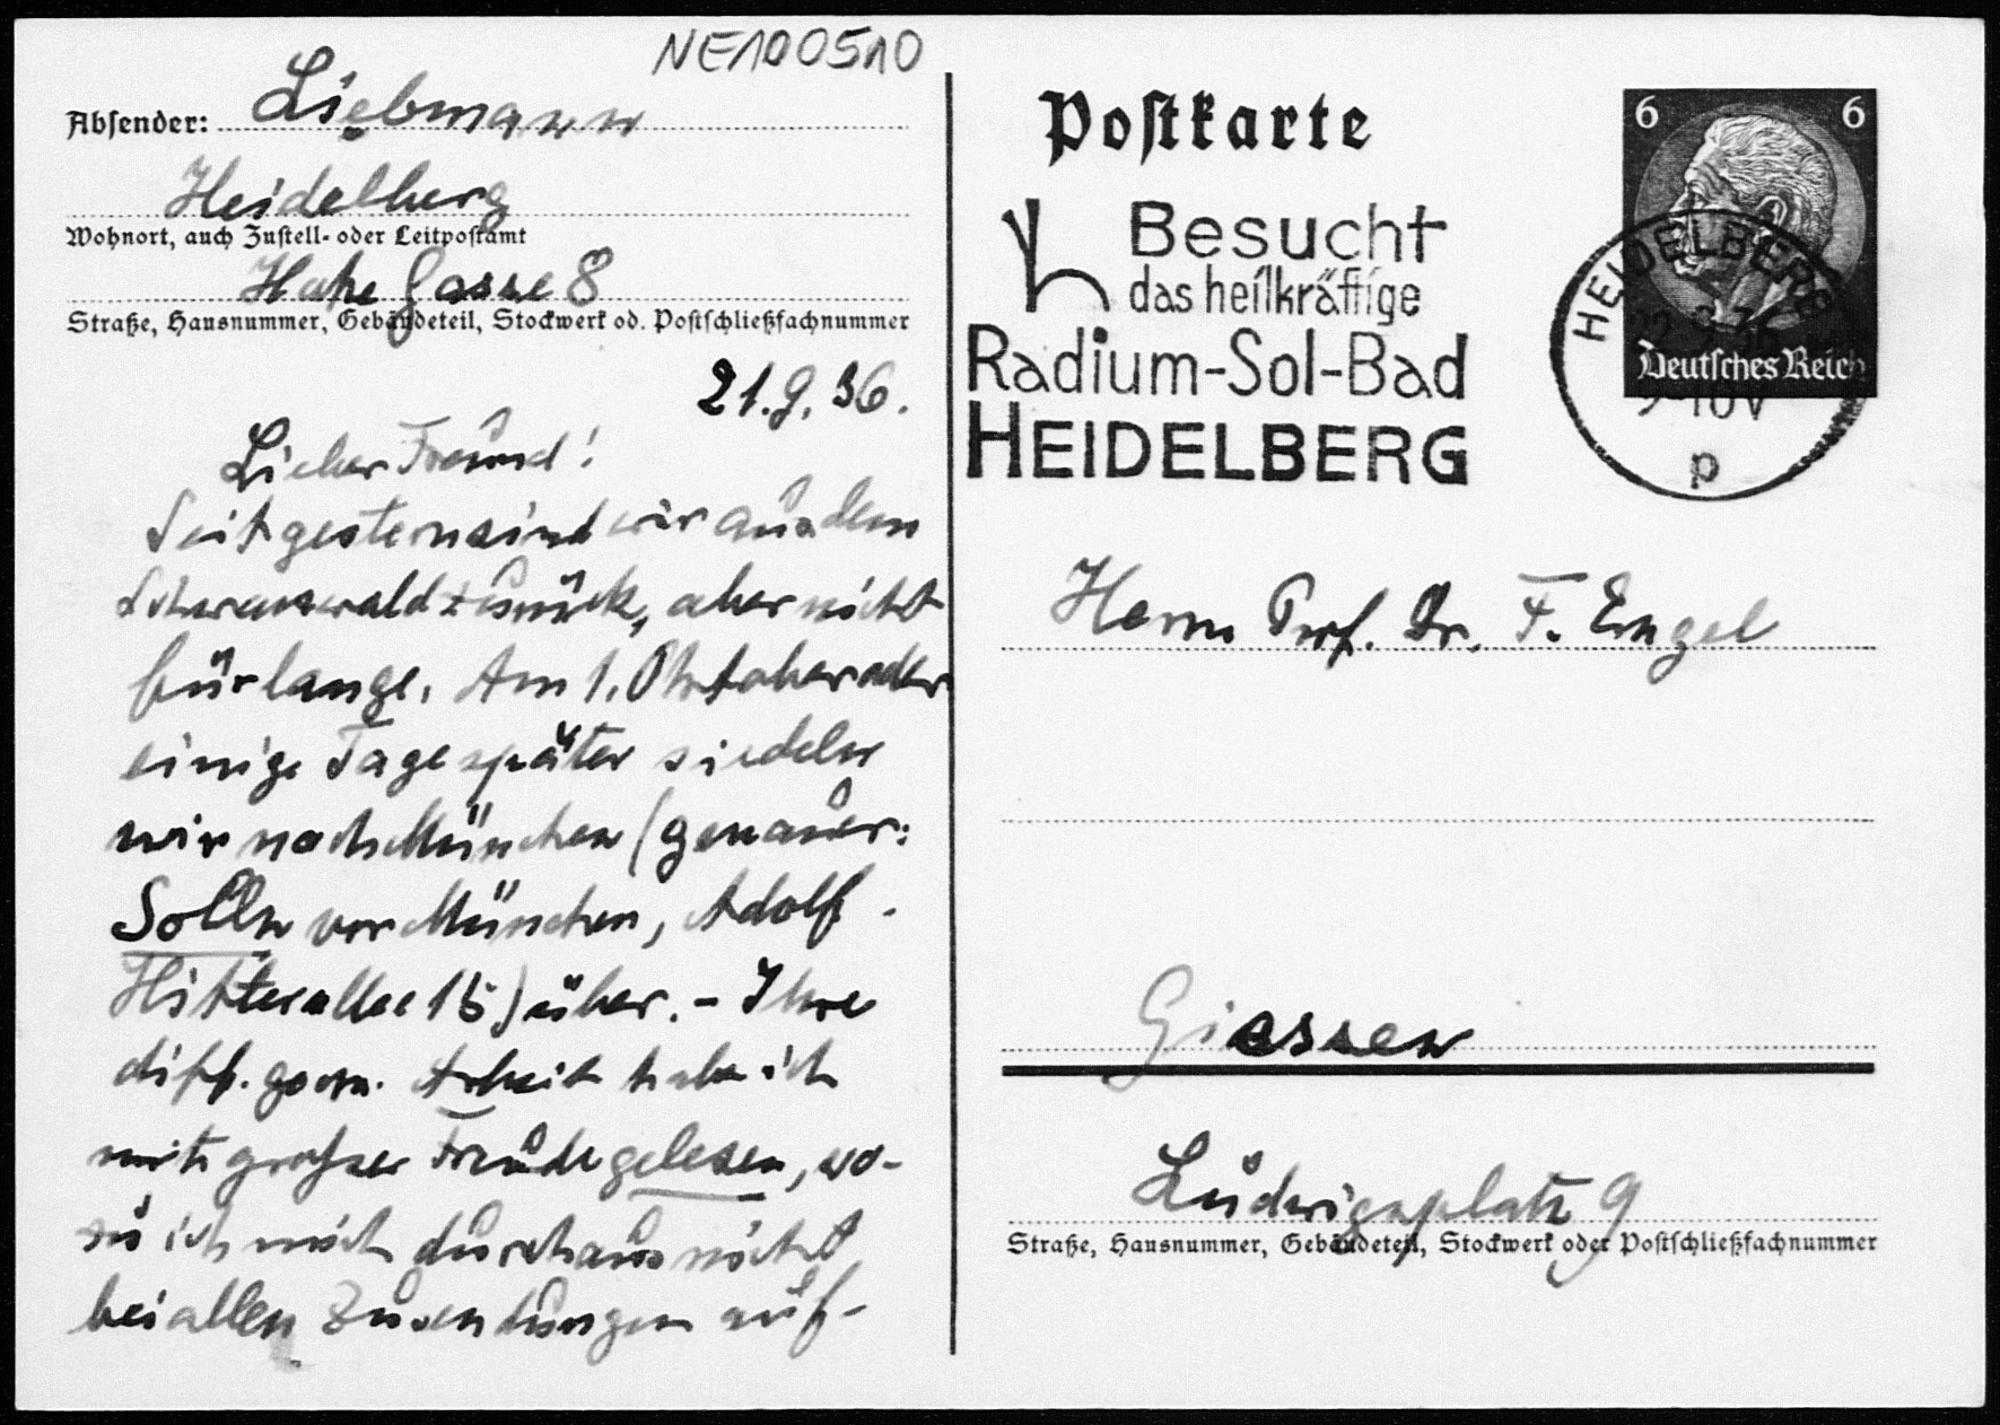 NE100510
Absender: Liebmann
Heidelberg
Wohnort, auch Zustell- oder Leitpostamt
Hohe Gasse 8
Straße, Hausnummer, Gebäudeteil, Stockwerk od. Postschließfachnummer
21.9.36.
Lieber Freund!
Seit gestern sind wir aus dem
Schwarzwald zurück, aber nicht
für lange. Am 1. Oktober oder
einige Tage später siedeln
wir nach München (genauer:
Solln vor München, Adolf-
Hitlerallee 15) über. - Ihre
diff. geom. Arbeit habe ich
mit großer Freude gelesen, wo-
zu ich mich durchaus nicht
bei allen Zusendungen auf-
Postkarte
6 6
Deutsches Reich
Besucht
das heilkräftige
Radium-Sol-Bad
HEIDELBERG
HEIDELBERG
22.9.36
9-10V
p
Herrn Prof. Dr. F. Engel
Giessen
Ludwigsplatz 9
Straße, Hausnummer, Gebäudeteil, Stockwerk oder Postschließfachnummer